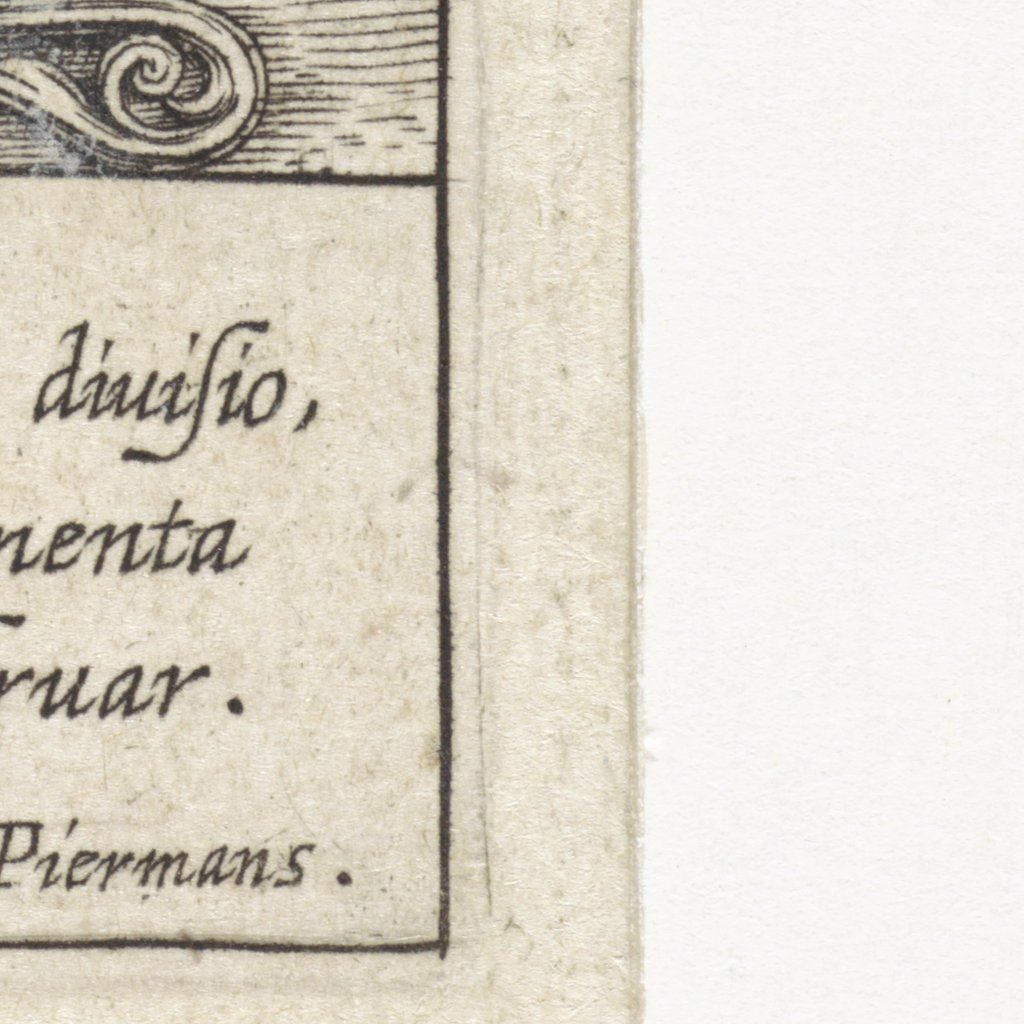 diuiſio,
menta
ruar.
Piermans.